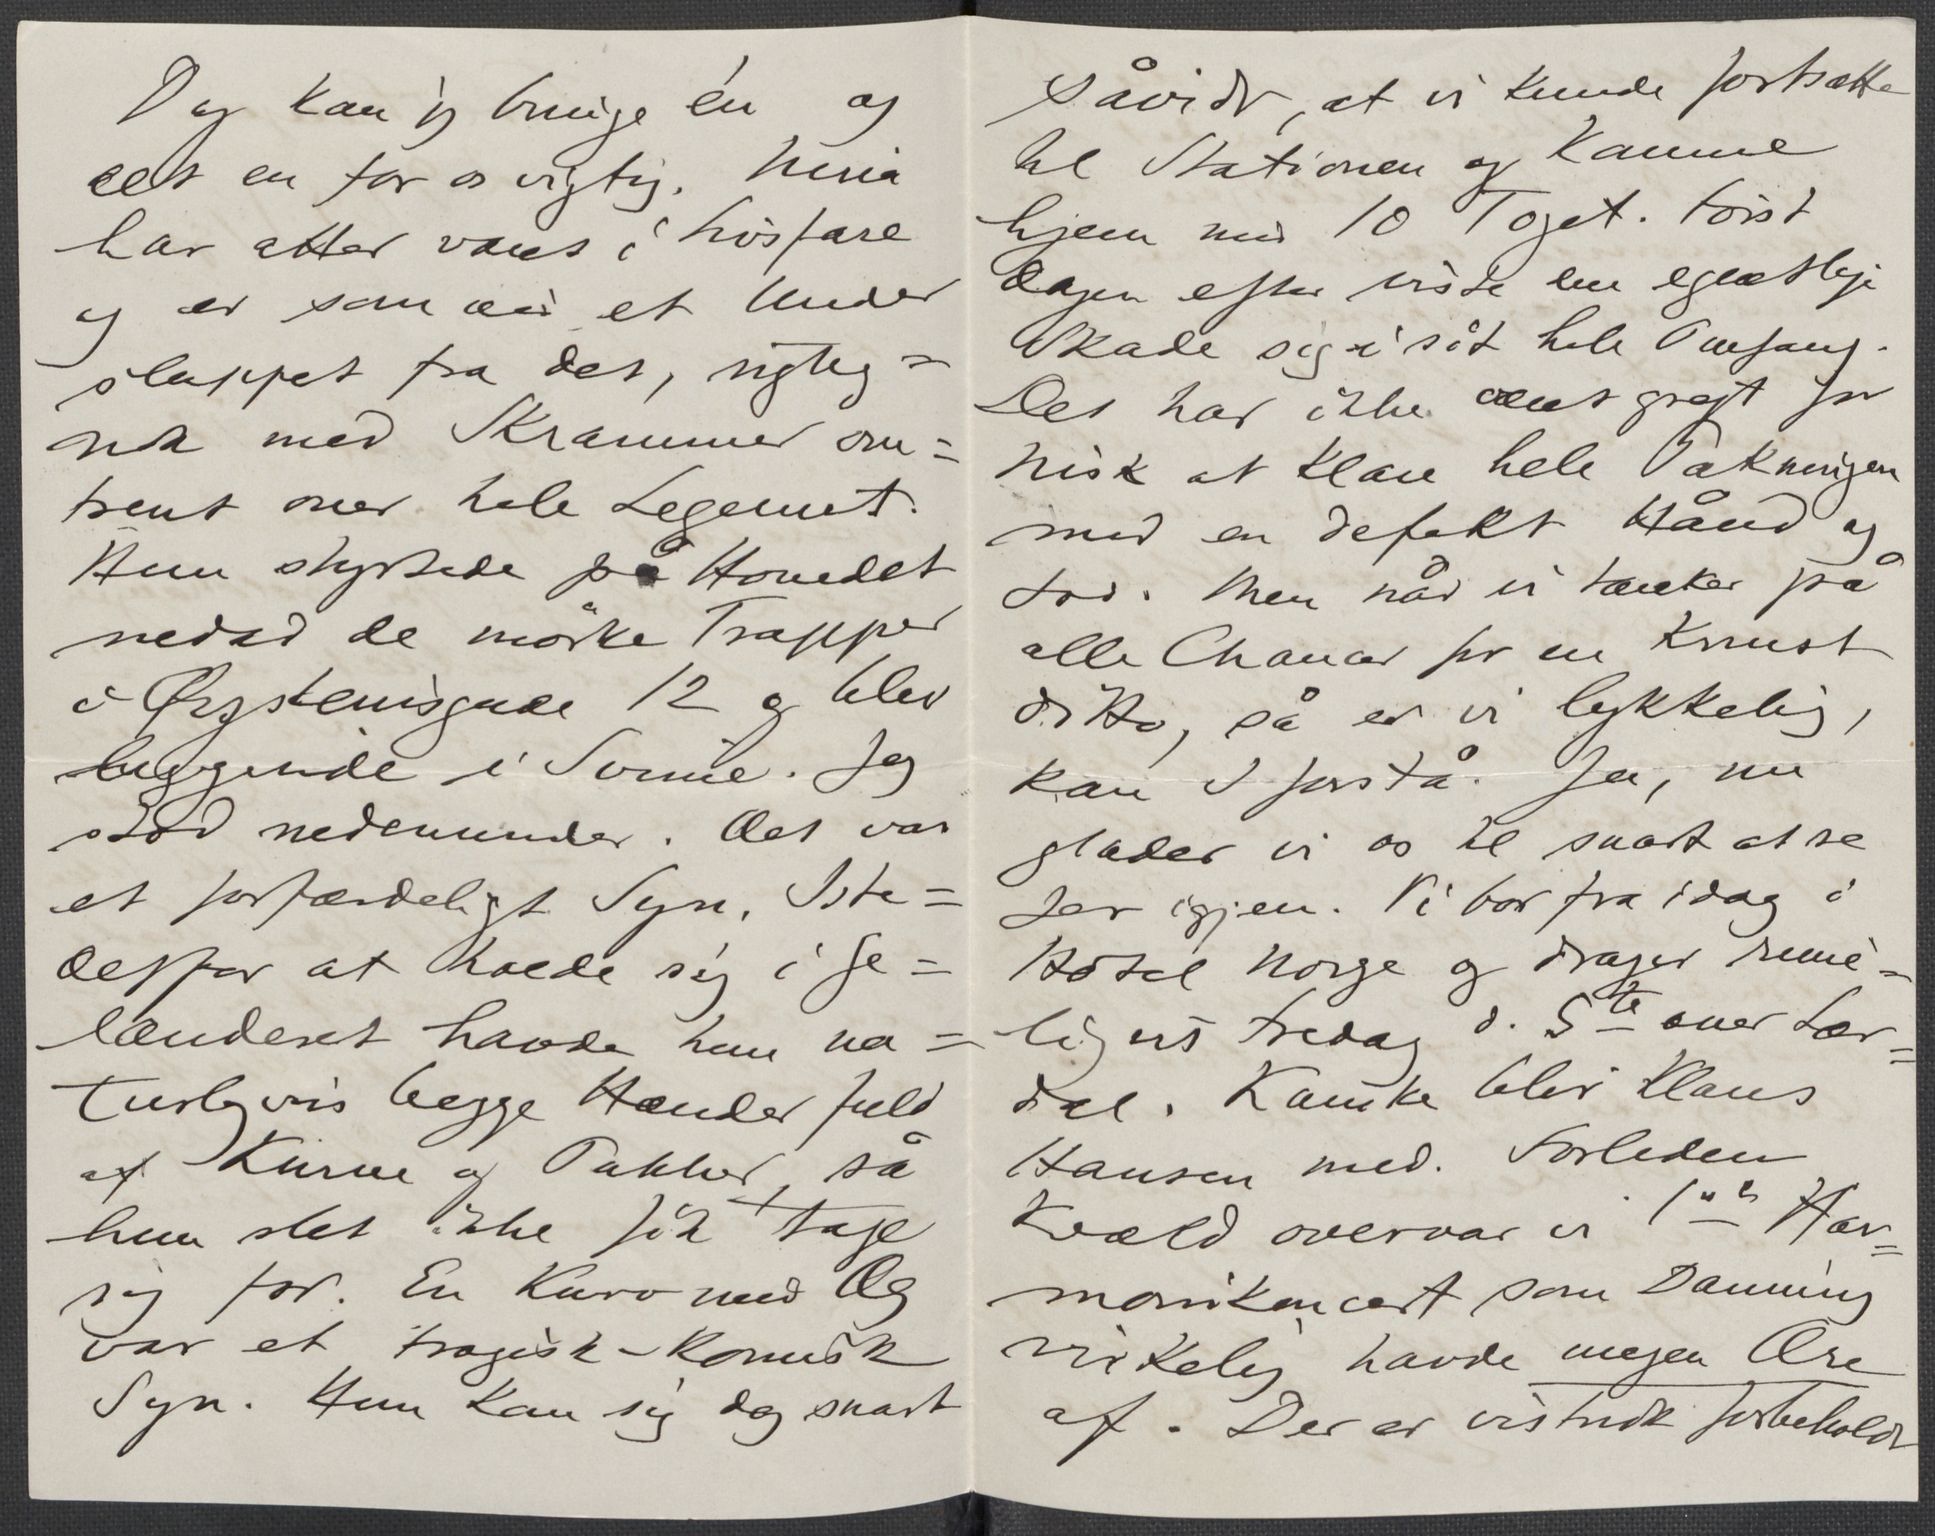 Dog kan jeg bringe én og
det en for os vigtig. Nina
har atter været i Livsfare
og er som ved et Under
sluppet fra det, rigtig=
nok med Skrammer om=
trent over hele Legemet.
Hun styrtede på Hovedet
nedad de mörke Trapper
i Ørgstenisgade 12 og blev
liggende i Svime. Jeg
stod nedenunder. Det var
et forfærdeligt Syn. Iste=
detfor at holde sig i Ge=
lænderet havde hun na=
turligvis begge Hænder fuld
af Kurve og Pakker, så
hun slet ikke fik tage
sig for. En Kurv med Æg
var et tragisk-komisk
Syn. Hun kom sig dog snart
såvidt, at vi kunde fortsætte
til Stationen og komme
hjem med 10 Toget. Først
dagen efter viste den egentlige
Skade sig i sit hele Omfang.
Det har ikke været greit for
Nisk at klare hele Pakningen
med en defekt Hånd og
Fod. Men når vi tænker på
alle Chancer for en knust
ditto, så er vi lykkelig,
kan I forstå. Ja, nu
glæder vi os til snart at se
Jer igjen. Vi bor fra idag i
Hôtel Norge og drager rime=
ligvis Fredag d. 5te over Lær=
dal. Kanske blir Klaus
Hansen med. Forleden
Kvæld overvar vi 1ste Har=
monikoncert som Danning
virkelig havde megen Ære
af. Der er vistnok forbeholdt